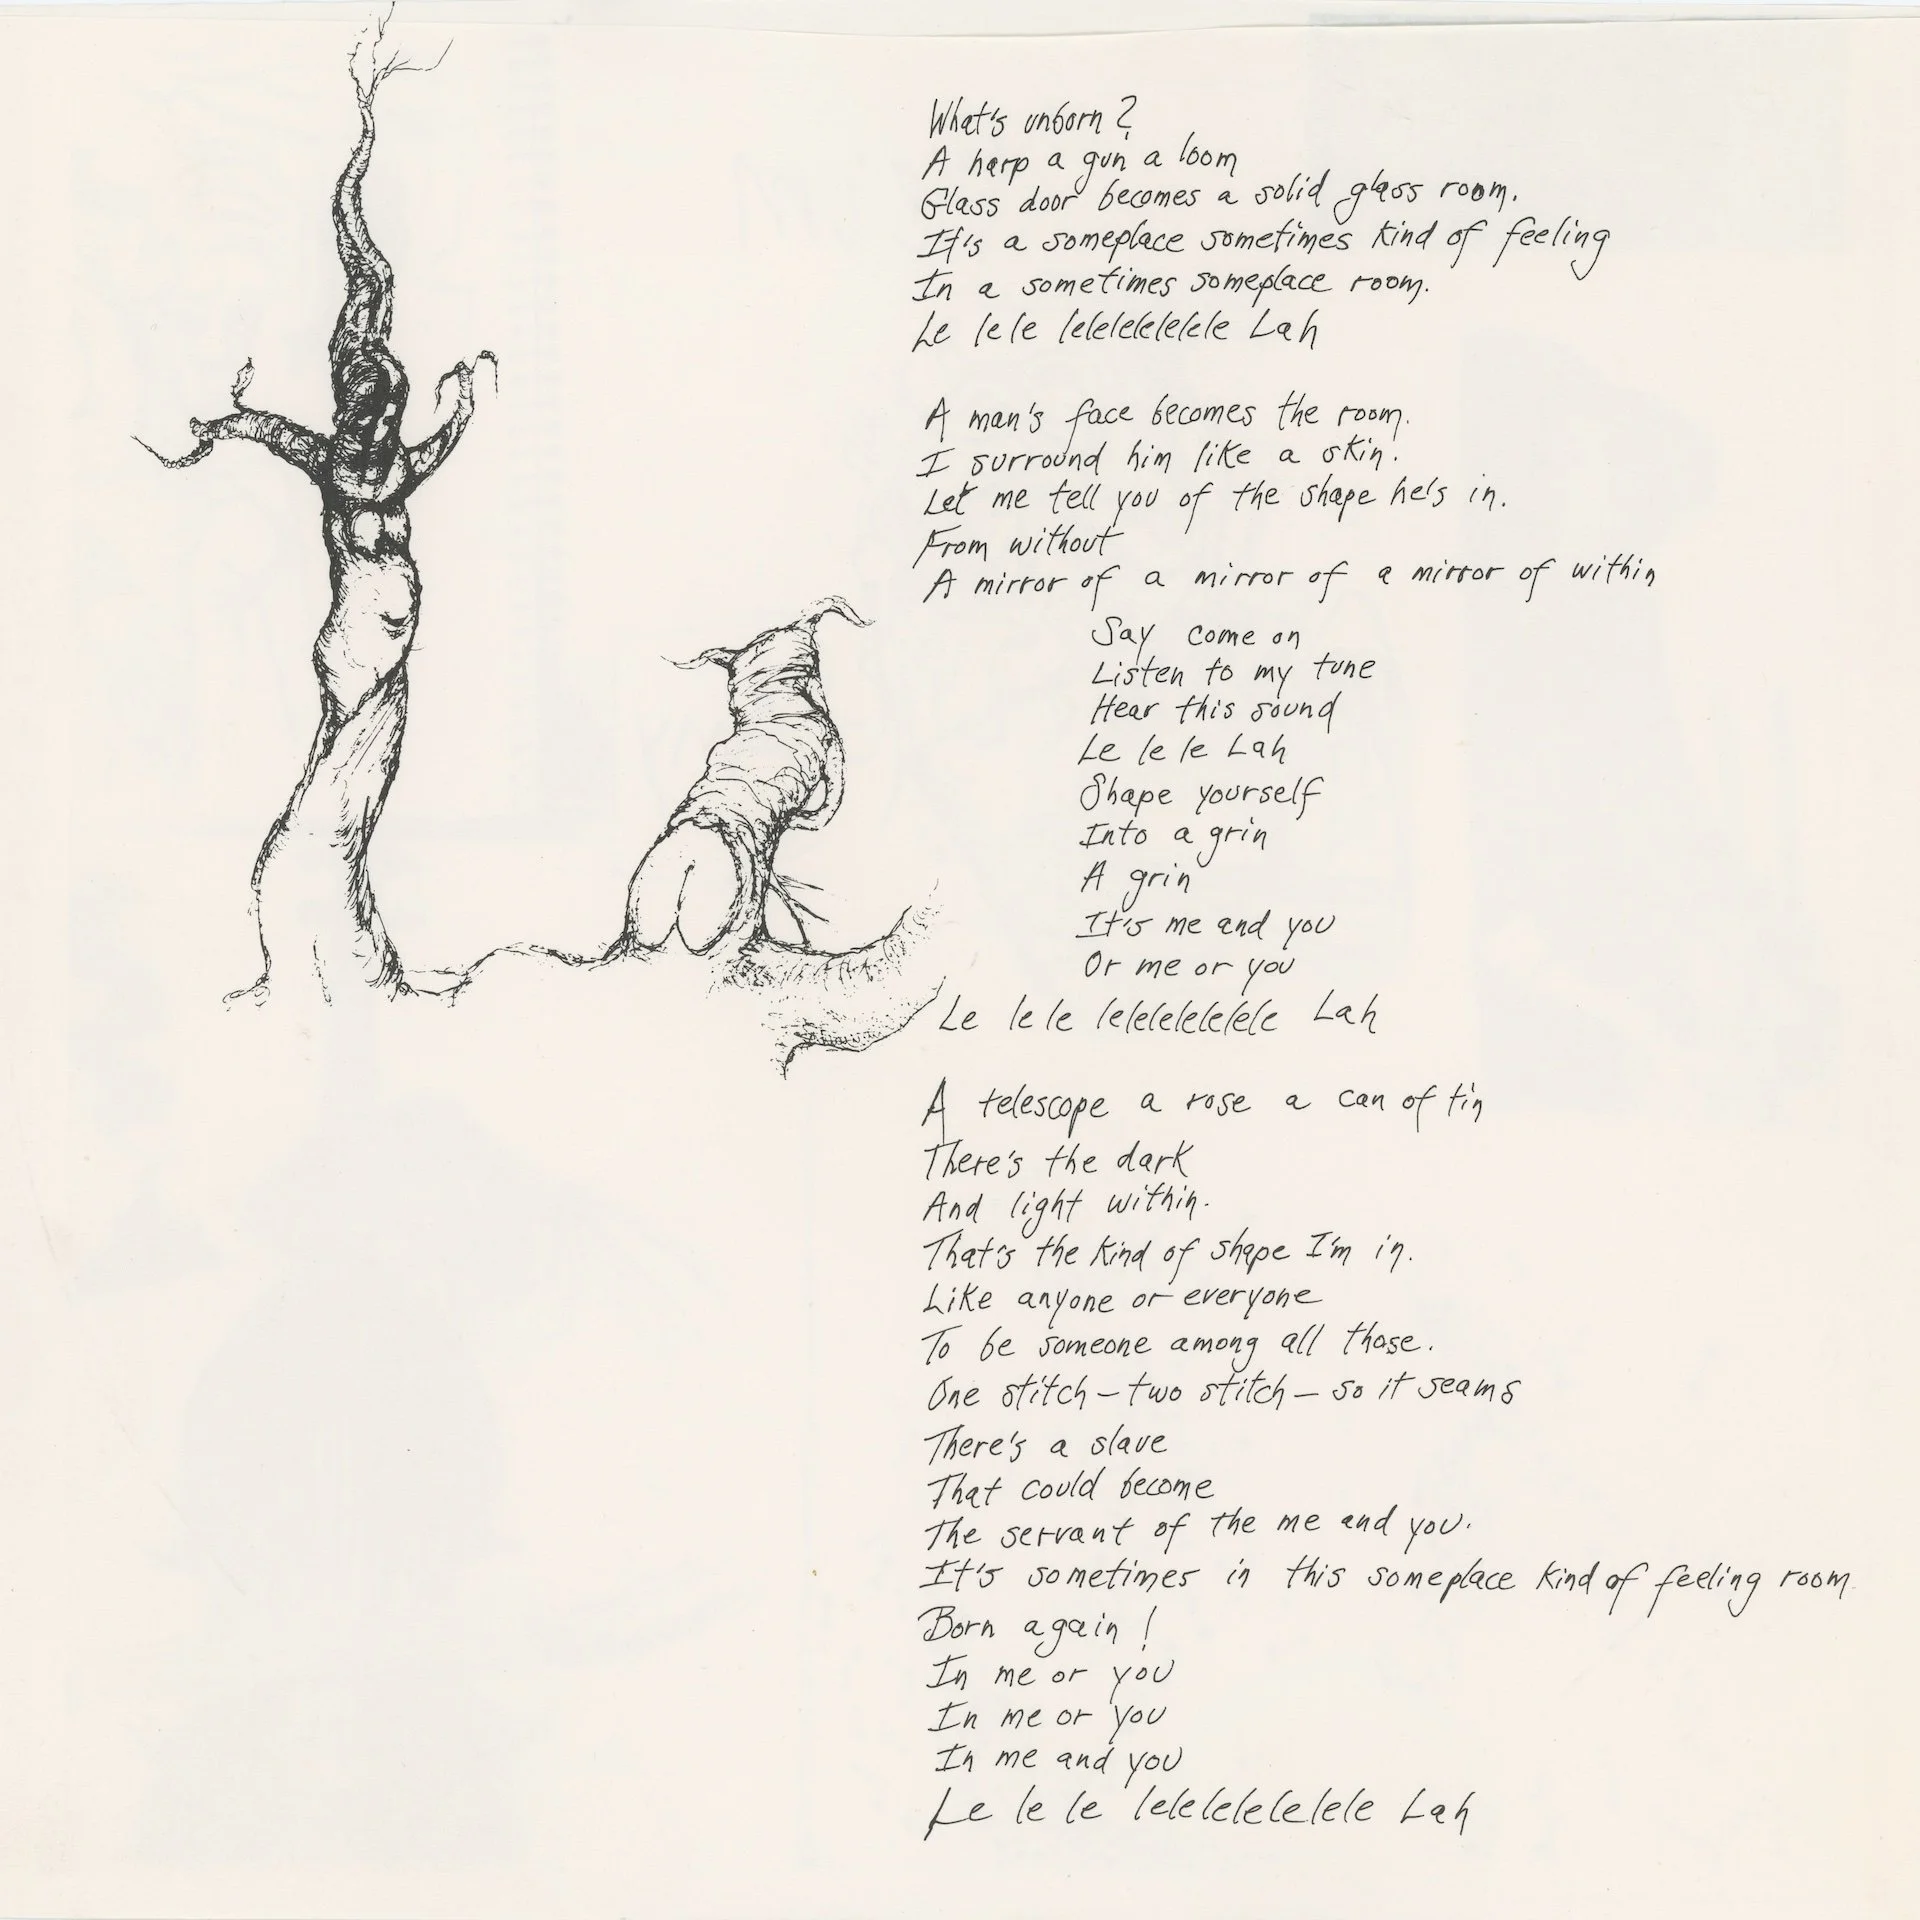 What's unborn?
A harp a gun a loom
Glass door becomes a solid glass room.
It's a someplace sometimes kind of feeling
In a sometimes someplace room.
Le le le lelelelelele Lah
A man's face becomes the room.
I surround him like a skin.
Let me tell you of the shape he's in.
From without
A mirror of a mirror of a mirror of within
Say come on
Listen to my tune
Hear this sound
Le le le Lah
Shape yourself
Into a grin
A grin
It's me and you
Or me or you
Le le le lelelelelelele Lah
A telescope a rose a can of tin
There's the dark
And light within.
That's the kind of shape I'm in.
Like anyone or everyone
To be someone among all those.
One stitch – two stitch – so it seams
There's a slave
That could become
The servant of the me and you.
It's sometimes in this someplace kind of feeling room
Born again!
In me or you
In me or you
In me and you
Le le le lelelelelelele Lah